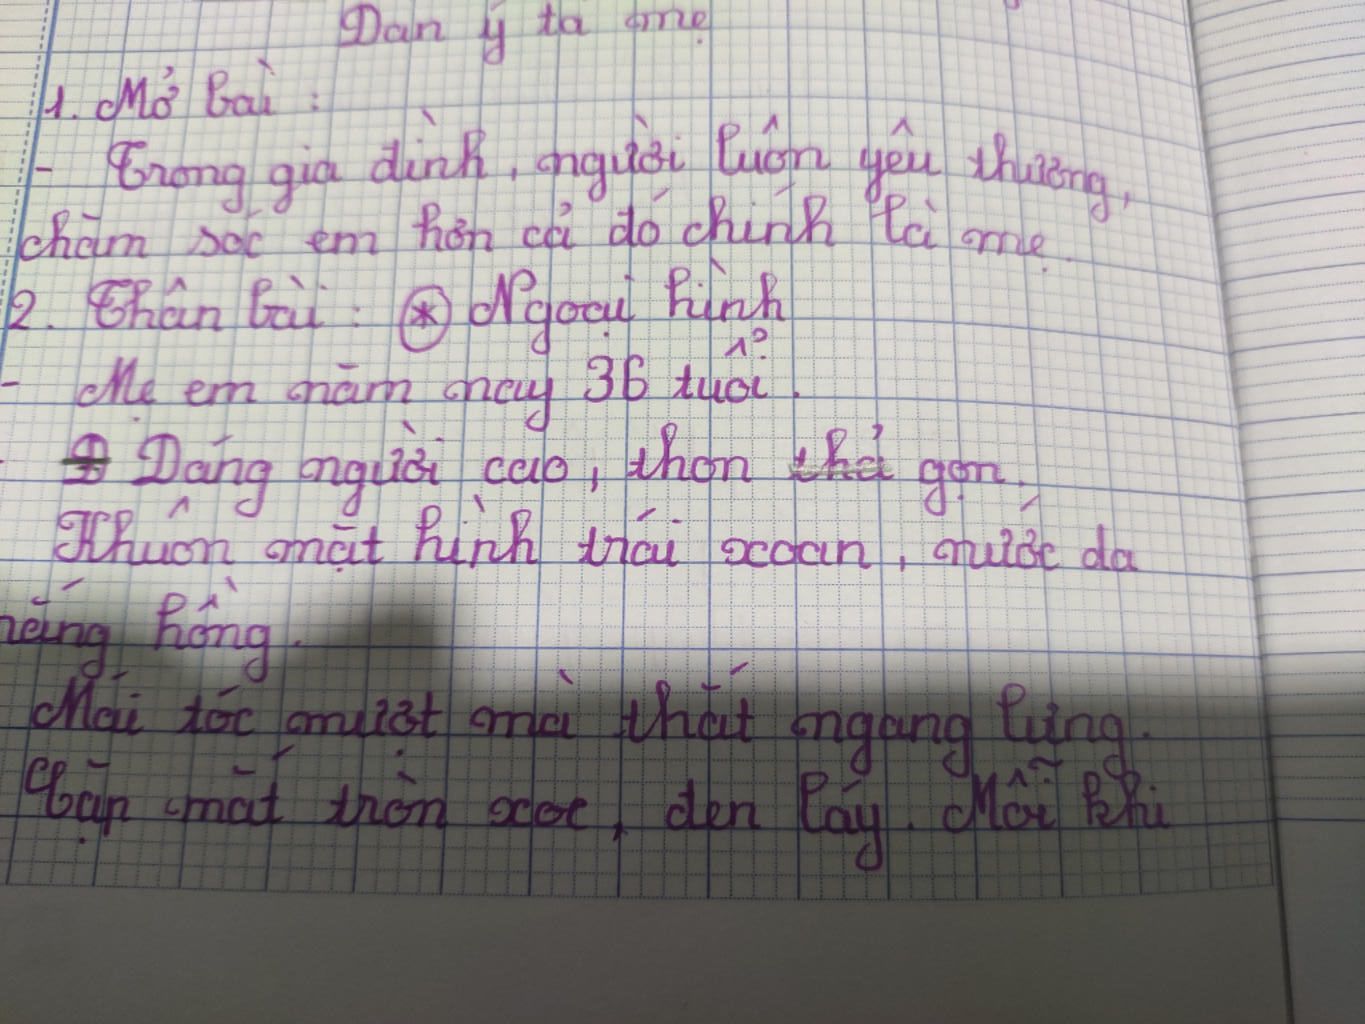 Dàn ý tả mẹ
1. Mở bài :
- Trong gia đình, người luôn yêu thương,
chăm sóc em hơn cả đó chính là mẹ.
2. Thân bài : * Ngoại hình
- Mẹ em năm nay 36 tuổi.
- Dáng người cao, thon thả gọn.
Khuôn mặt hình trái xoan, nước da
trắng hồng.
Mái tóc mượt mà thắt ngang lưng.
Cặp mắt tròn xoe, đen láy. Mỗi khi